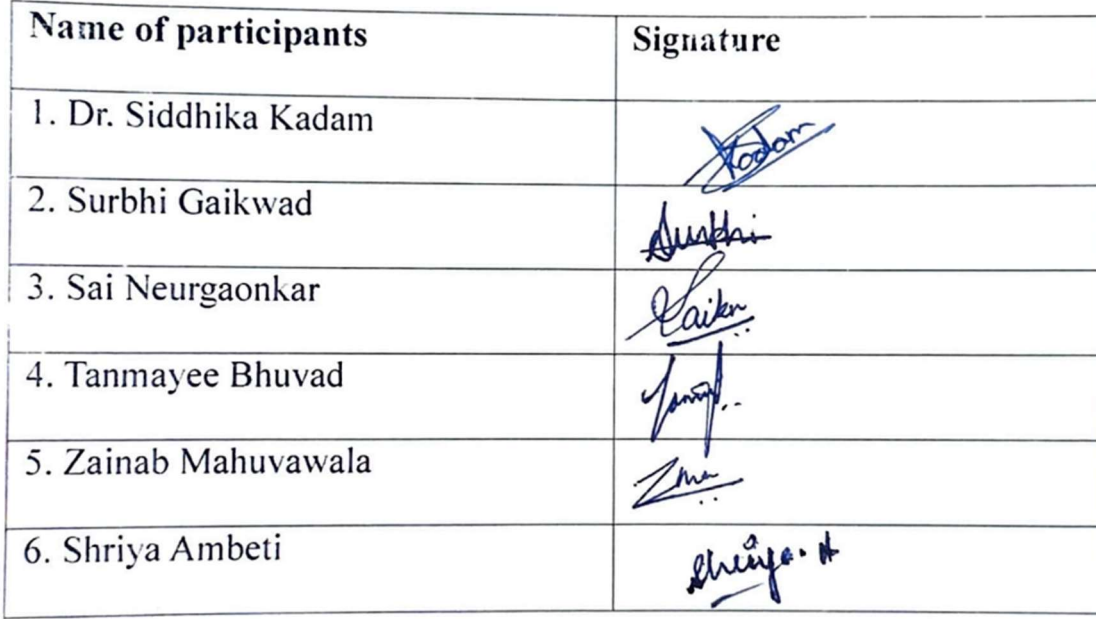 Name of participants Signature
1. Dr. Siddhika Kadam Kadam
2. Surbhi Gaikwad Surbhi
3. Sai Neurgaonkar
4. Tanmayee Bhuvad
5. Zainab Mahuvawala
6. Shriya Ambeti Shriya. A